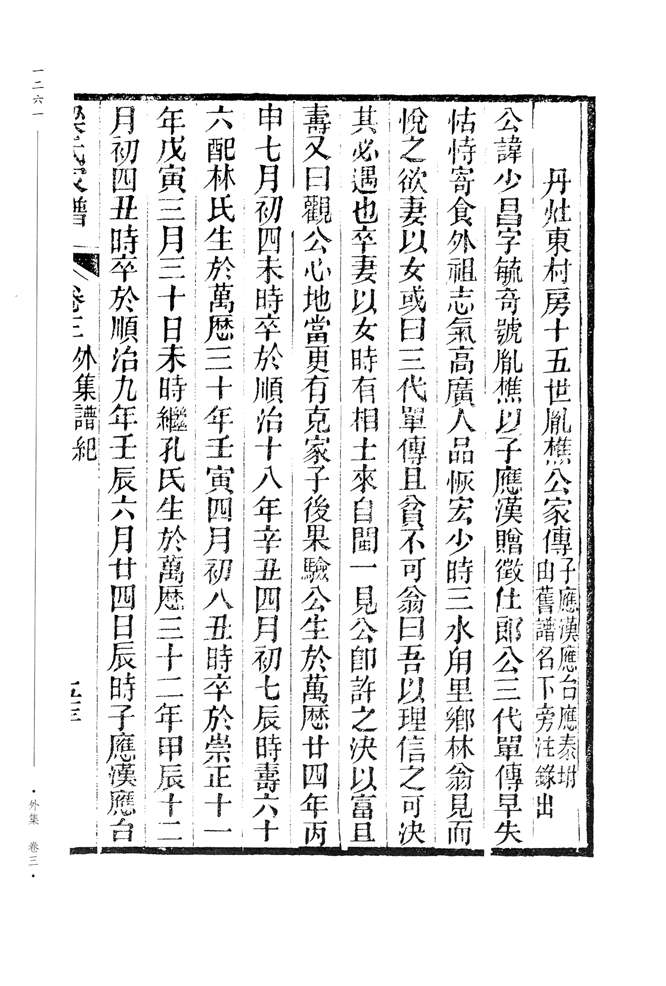 丹灶東村房十五世胤樵公家傳子應漢應台應泰坿
由舊譜名下旁注錄出
公諱少昌字毓奇號胤樵以子應漢贈徵仕郎公三代單傳早失
怙恃寄食外祖志氣高廣人品恢宏少時三水甪里鄉林翁見而
悅之欲妻以女或曰三代單傳且貧不可翁曰吾以理信之可決
其必遇也卒妻以女時有相士來自閩一見公卽許之決以富且
壽又曰觀公心地當更有克家子後果驗公生於萬厯廿四年丙
申七月初四未時卒於順治十八年辛丑四月初七辰時壽六十
六配林氏生於萬厯三十年壬寅四月初八丑時卒於崇正十一
年戊寅三月三十日未時繼孔氏生於萬厯三十二年甲辰十二
月初四丑時卒於順治九年壬辰六月廿四日辰時子應漢應台
梁氏家譜 卷三 外集譜紀
一二六一
·外集 卷三·